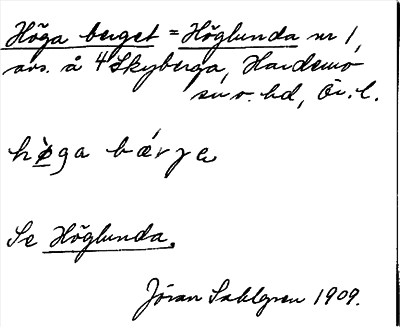 Höga berget = Höglunda nr 1,
avs. å 4 Skyberga, Hardemo
sn o. hd, Ör. l.
hø̀ga bǽrje
Se Höglunda.
Jöran Sahlgren 1909.